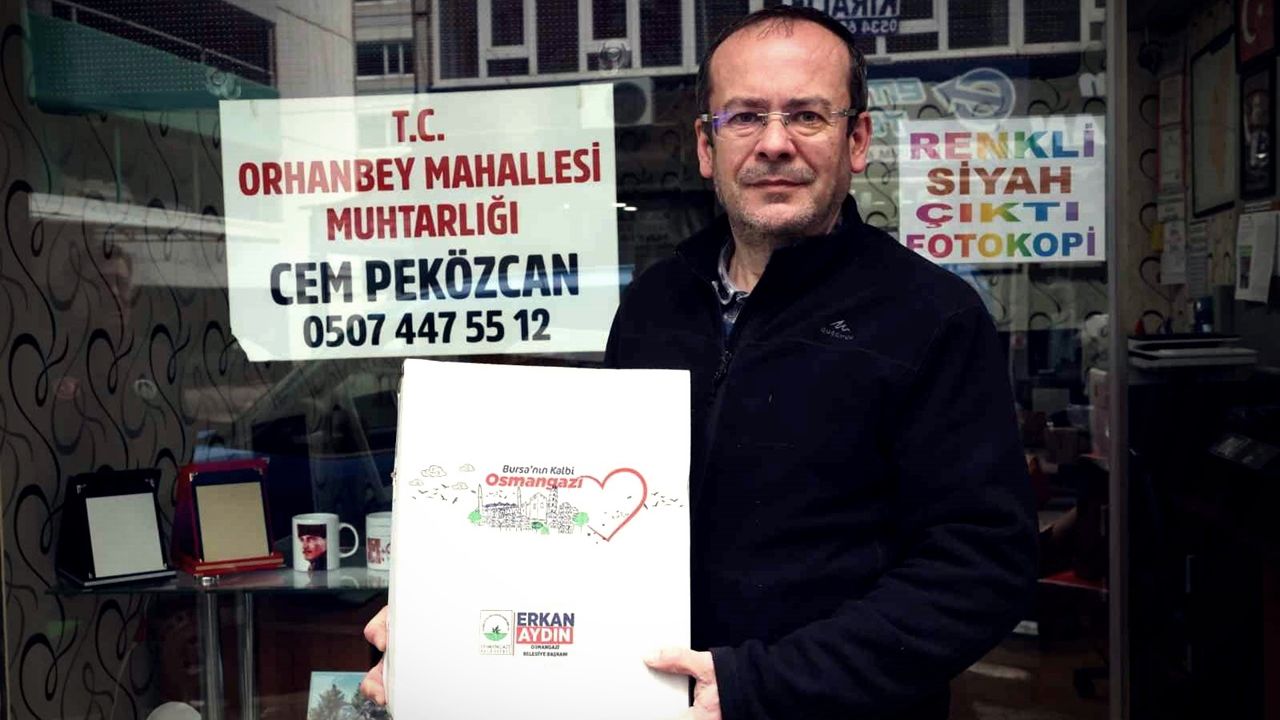 T.C.
ORHANBEY MAHALLESİ
MUHTARLIĞI
CEM PEKÖZCAN
0507 447 55 12
RENKLİ
SİYAH
ÇIKTI
FOTOKOPİ
Bursa'nın Kalbi
Osmangazi
ERKAN
AYDIN
OSMANGAZİ
BELEDİYE BAŞKANI
KİRALIK
0534 6